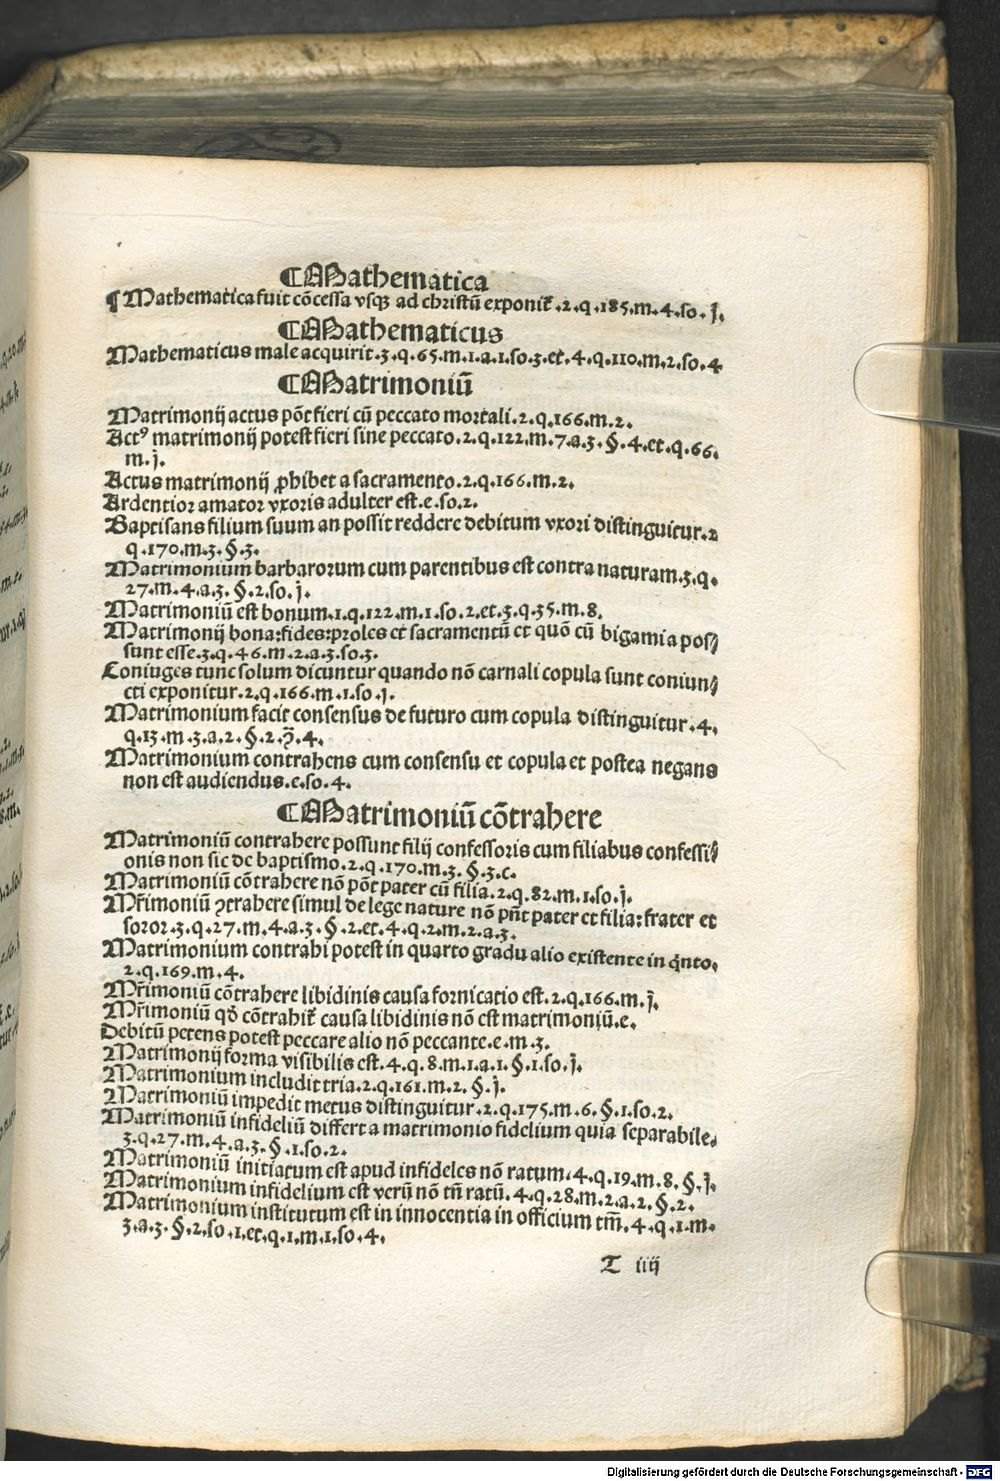 ¶Mathematica
¶ Mathematica fuit cōcessa vsqꝫ ad christū exponit̃ .2.q.185.m.4.so.j.
¶Mathematicus
Mathematicus male acquirit.3.q.65.m.1.a.1.so.3.et.4.q.110.m.2.so.4
¶Matrimoniū
Matrimonij actus pōt fieri cū peccato mortali.2.q.166.m.2.
Actꝰ matrimonij potest fieri sine peccato.2.q.122.m.7.a.3.§.4.et.q.66.
m.j.
Actus matrimonij ꝓhibet a sacramento.2.q.166.m.2.
Ardentior amator vxoris adulter est.e.so.2.
Baptisans filium suum an possit reddere debitum vxori distinguitur.2
q.170.m.3.§.3.
Matrimonium barbarorum cum parentibus est contra naturam.3.q.
27.m.4.a.3.§.2.so.j.
Matrimoniū est bonum.1.q.122.m.1.so.2.et.3.q.35.m.8.
Matrimonij bona:fides:proles et sacramentū et quō cū bigamia pos⸗
sunt esse.3.q.46.m.2.a.3.so.3.
Coniuges tunc solum dicuntur quando nō carnali copula sunt coniun⸗
cti exponitur.2.q.166.m.1.so.j.
Matrimonium facit consensus de futuro cum copula distinguitur.4.
q.13.m.3.a.2.§.2.ꝯ̄.4.
Matrimonium contrahens cum consensu et copula et postea negans
non est audiendus.e.so.4.
¶Matrimoniū cōtrahere
Matrimoniū contrahere possunt filij confessoris cum filiabus confessi⸗
onis non sic de baptismo.2.q.170.m.3.§.3.c.
Matrimoniū cōtrahere nō pōt pater cū filia.2.q.82.m.1.so.j.
Mr̄imoniū ꝯtrahere simul de lege nature nō pn̄t pater et filia:frater et
soror.3.q.27.m.4.a.3.§.2.et.4.q.2.m.2.a.3.
Matrimonium contrahi potest in quarto gradu alio existente in qͥnto.
2.q.169.m.4.
Mr̄imoniū cōtrahere libidinis causa fornicatio est.2.q.166.m.j.
Mr̄imoniū qđ cōtrahit̃ causa libidinis nō est matrimoniū.e.
Debitū petens potest peccare alio nō peccante.e.m.3.
Matrimonij forma visibilis est.4.q.8.m.1.a.1.§.1.so.j.
Matrimonium includit tria.2.q.161.m.2.§.j.
Matrimoniū impedit metus distinguitur.2.q.175.m.6.§.1.so.2.
Matrimoniū infideliū differt a matrimonio fidelium quia separabile.
3.q.27.m.4.a.3.§.1.so.2.
Matrimoniū initiatum est apud infideles nō ratum.4.q.19.m.8.§.j.
Matrimonium infidelium est verū nō tn̄ ratū.4.q.28.m.2.a.2.§.2.
Matrimonium institutum est in innocentia in officium tm̄.4.q.1.m.
3.a.3.§.2.so.1.et.q.1.m.1.so.4.
T iiij
Digitalisierung gefördert durch die Deutsche Forschungsgemeinschaft - DFG